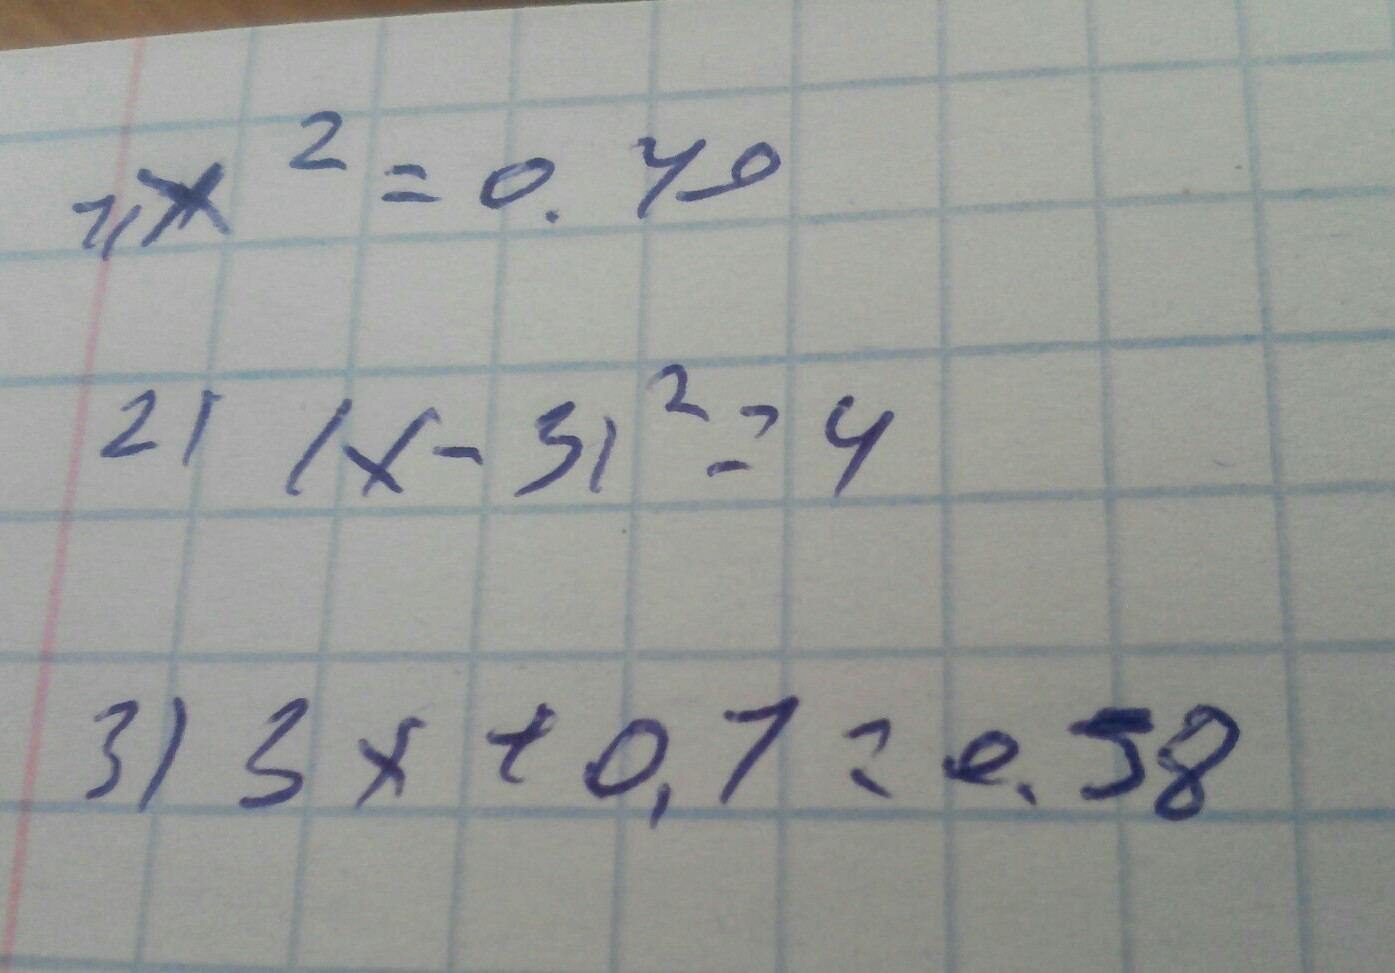 1) x² = 0.49
2) (x - 3)² = 4
3) 3x + 0,7 = 0.58